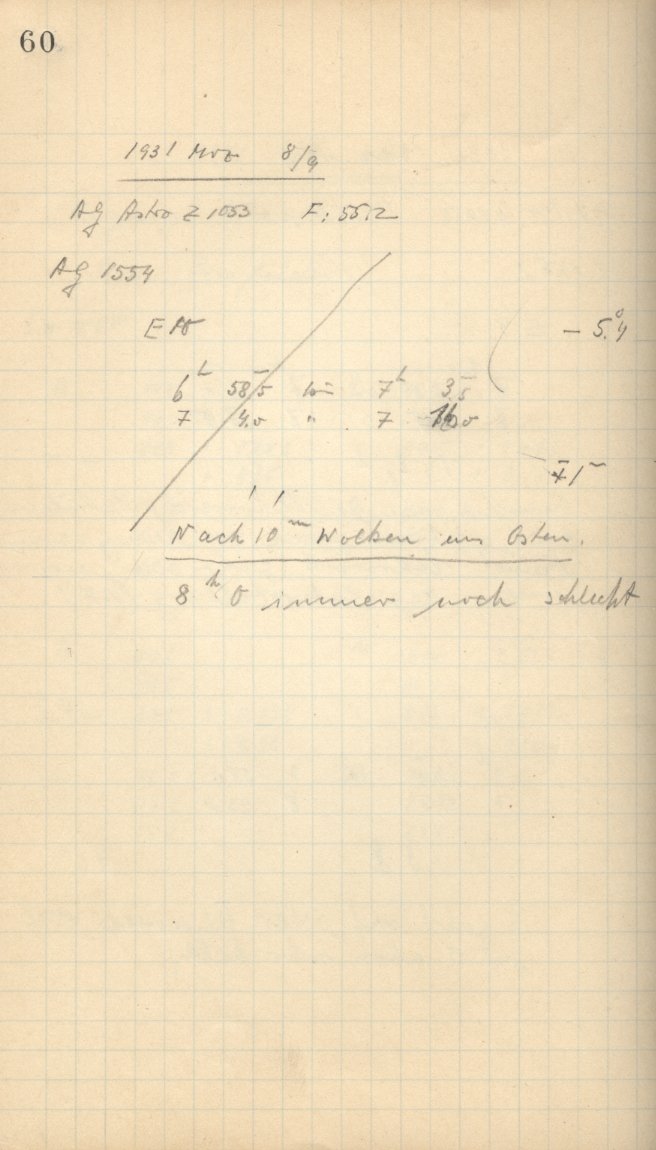 60
1931 Mrz 8/9
AG Astro Z 1053 F: 55.2
AG 1554
E
− 5.°4
6h 58.5 bis 7h 3.5
7 4.0 " 7
∓ 1m
Nach 10m Wolken aus Osten.
8h 0 immer noch schlecht